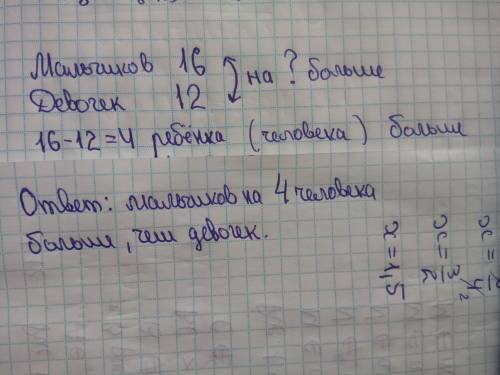 Мальчиков 16
Девочек 12
на ? больше
16-12=4 ребёнка (человека) больше
Ответ: мальчиков на 4 человека
больше, чем девочек.
x = 1,5